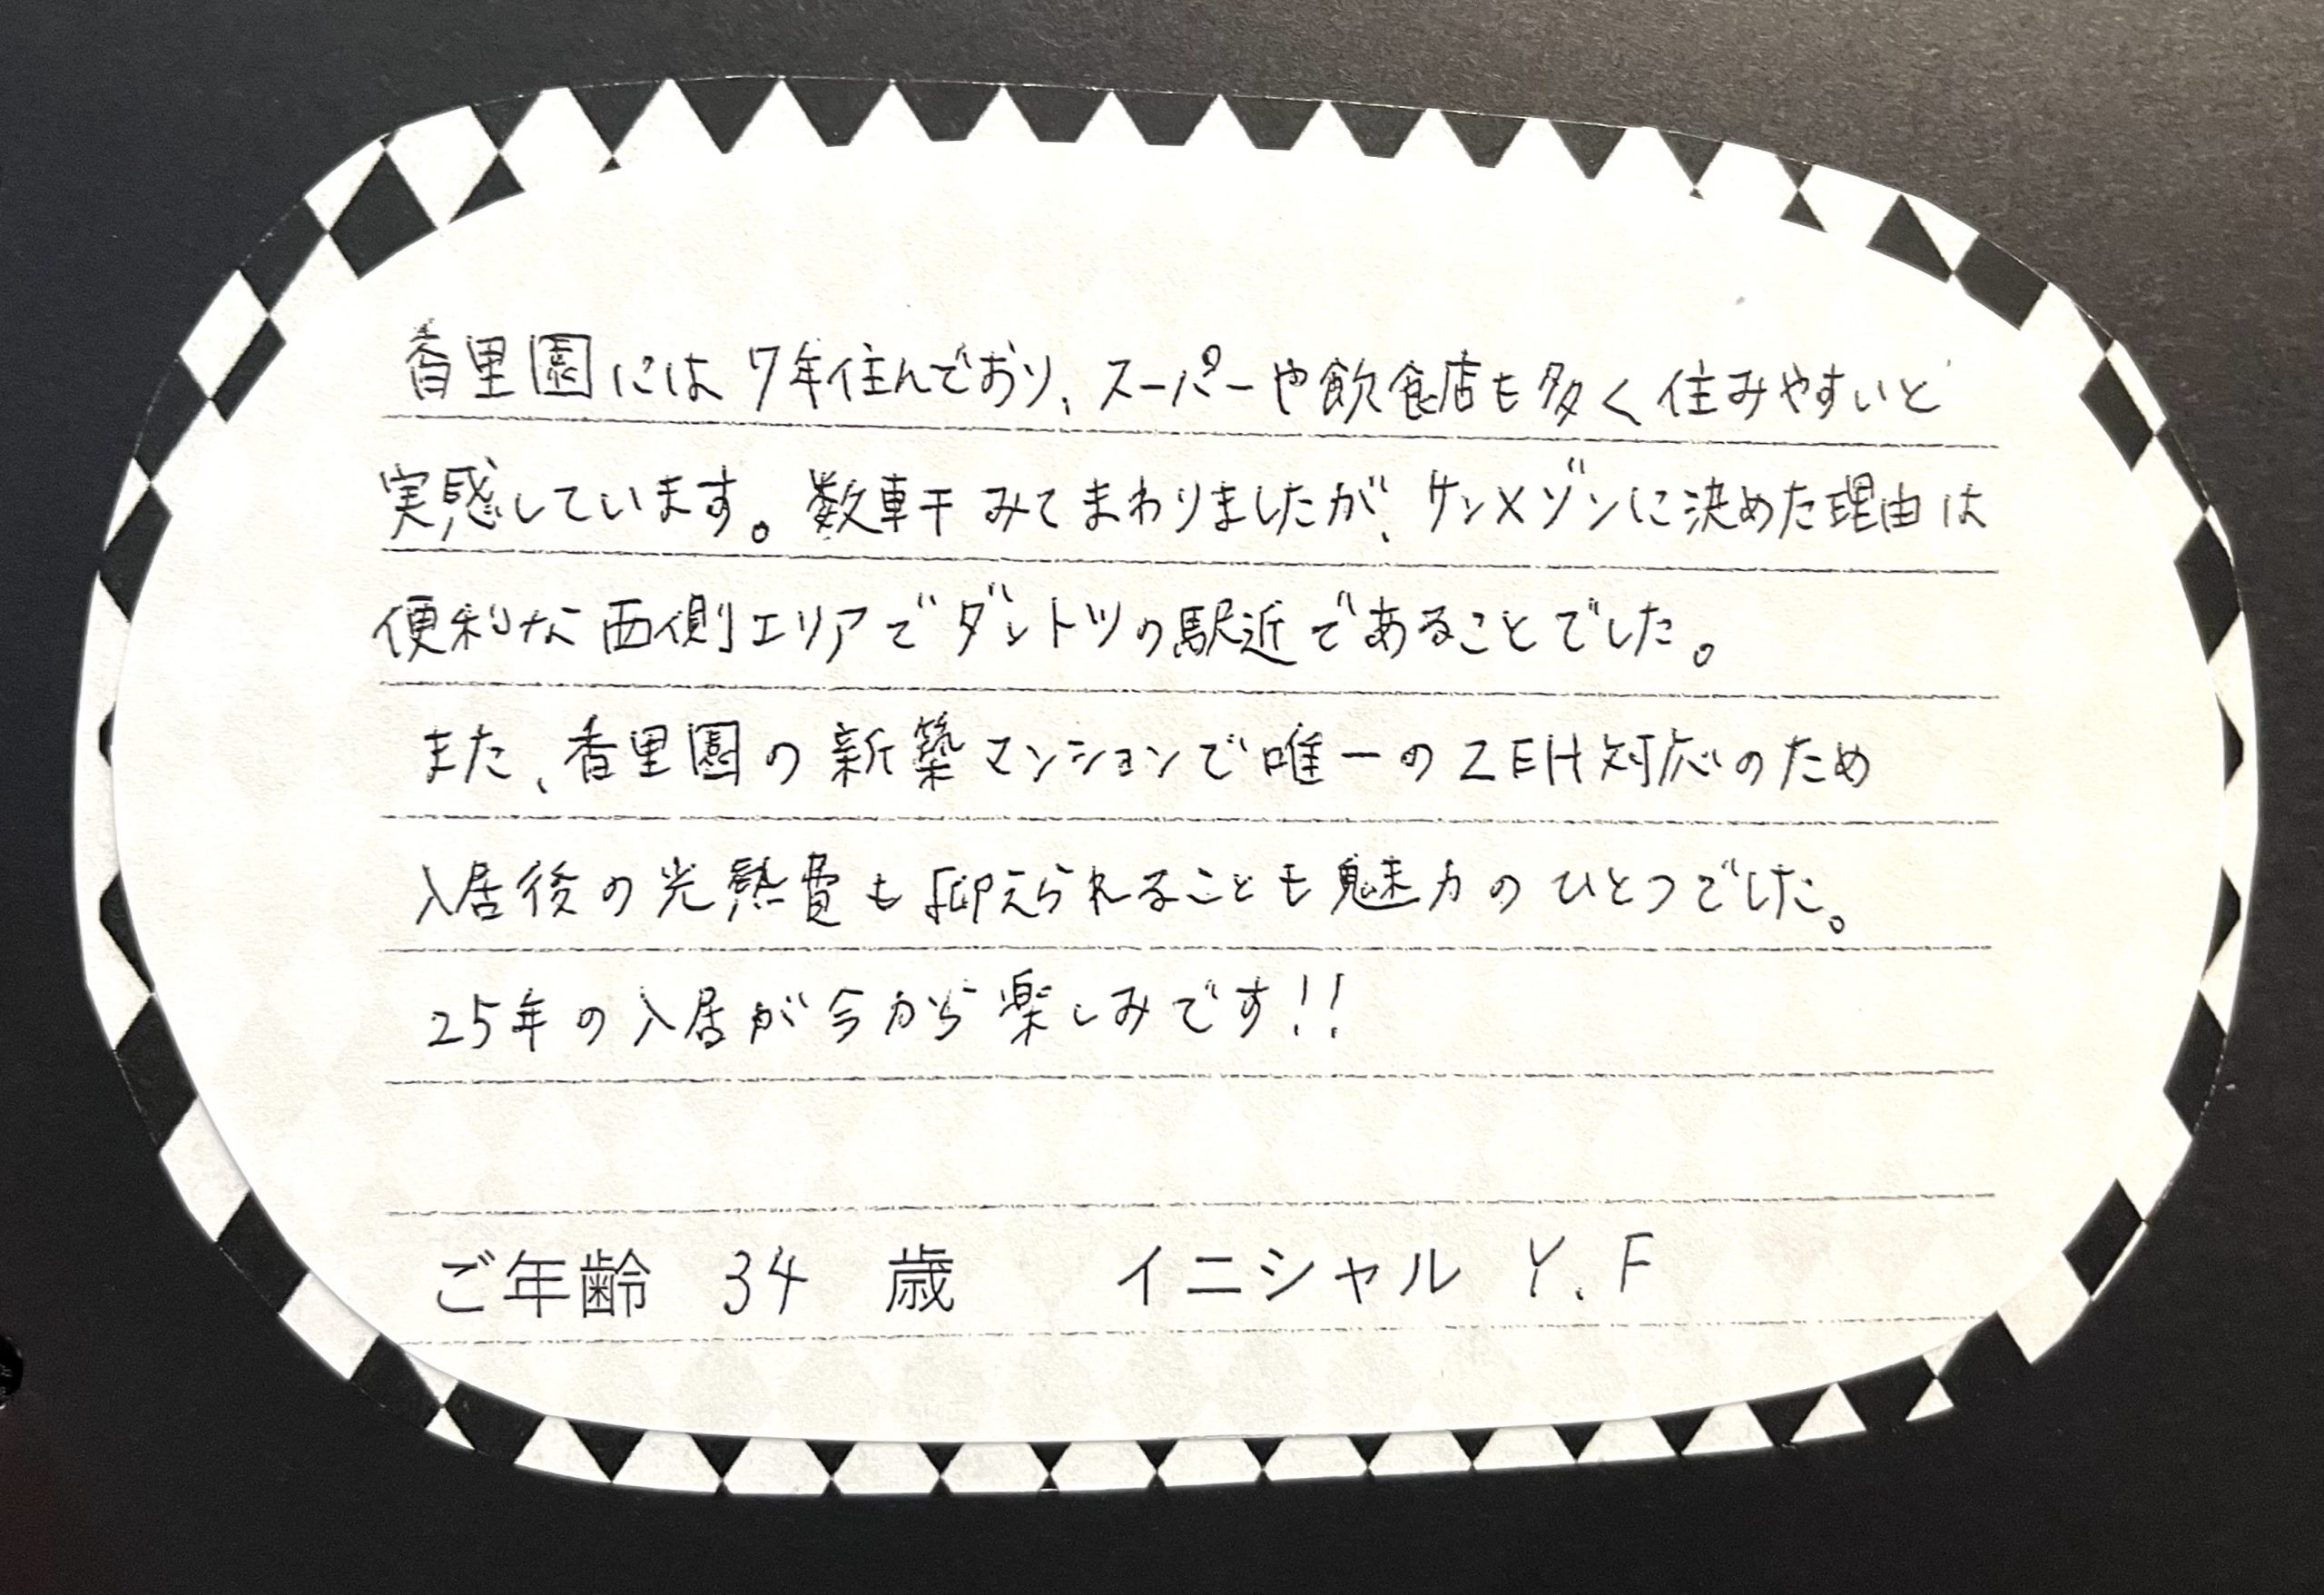 香里園には7年住んでおり、スーパーや飲食店も多く住みやすいと
実感しています。数軒みてまわりましたが、ケンメゾンに決めた理由は
便利な西側エリアでダントツの駅近であることでした。
また、香里園の新築マンションで唯一のZEH対応のため
入居後の光熱費も抑えられることも魅力のひとつでした。
25年の入居が今から楽しみです!!
ご年齢 34 歳 イニシャル Y.F